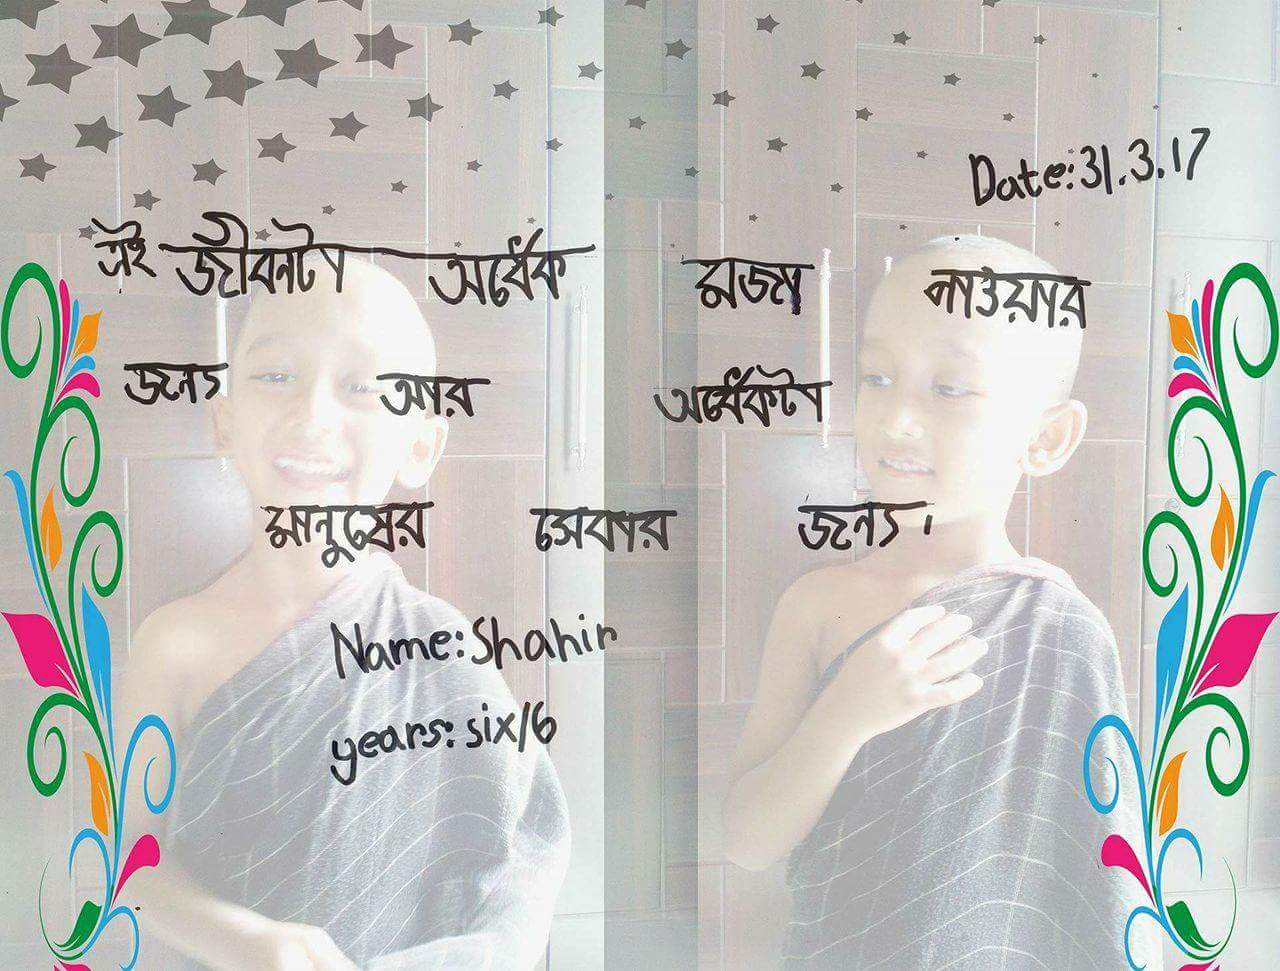 Date: 31.3.17
এই জীবনটা অর্ধেক মজা পাওয়ার
জন্য আর অর্ধেকটা
মানুষের সেবার জন্য।
Name: Shahin
years: six/6